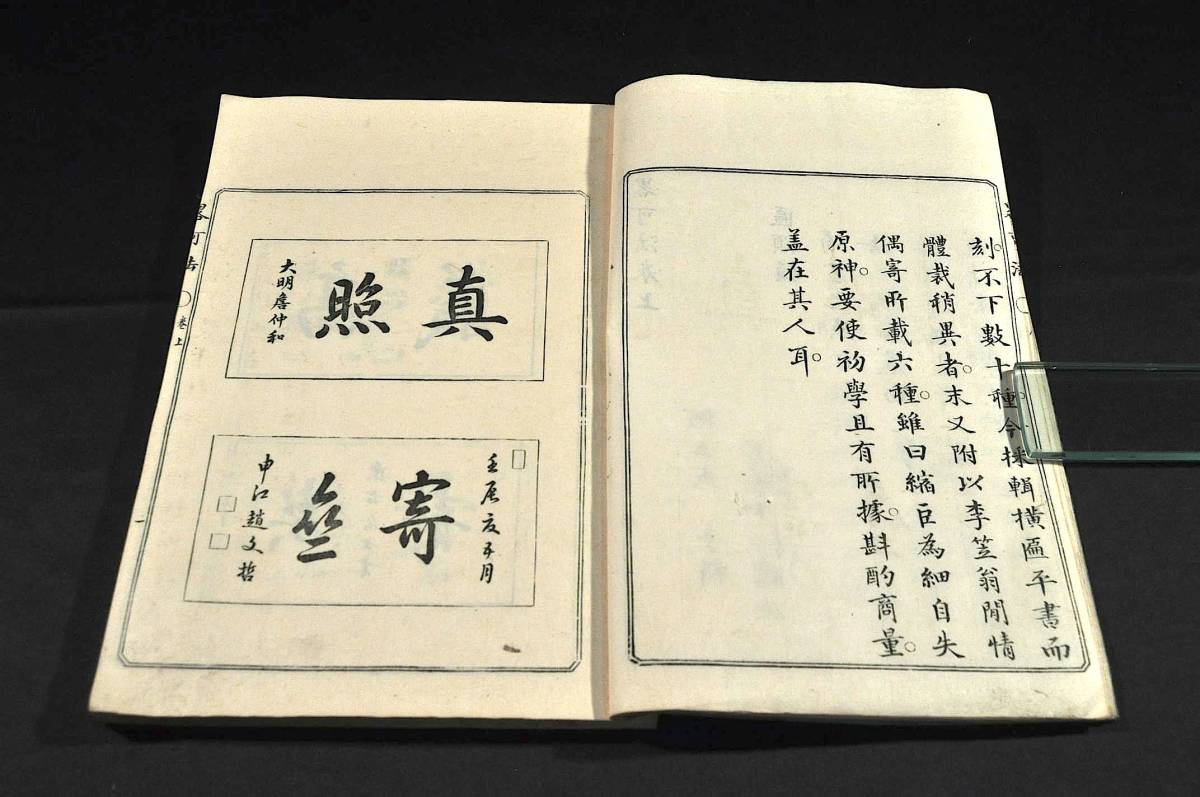 刻。不下數十種今採輯橫匾平書而
體裁稍異者。末又附以李笠翁閒情
偶寄所載六種。雖曰縮巨為細自失
原神。要使初學且有所據。斟酌商量。
盖在其人耳。
真照
大明詹仲和
壬辰夏月
寄
申江趙文哲
畧可法 卷上 一